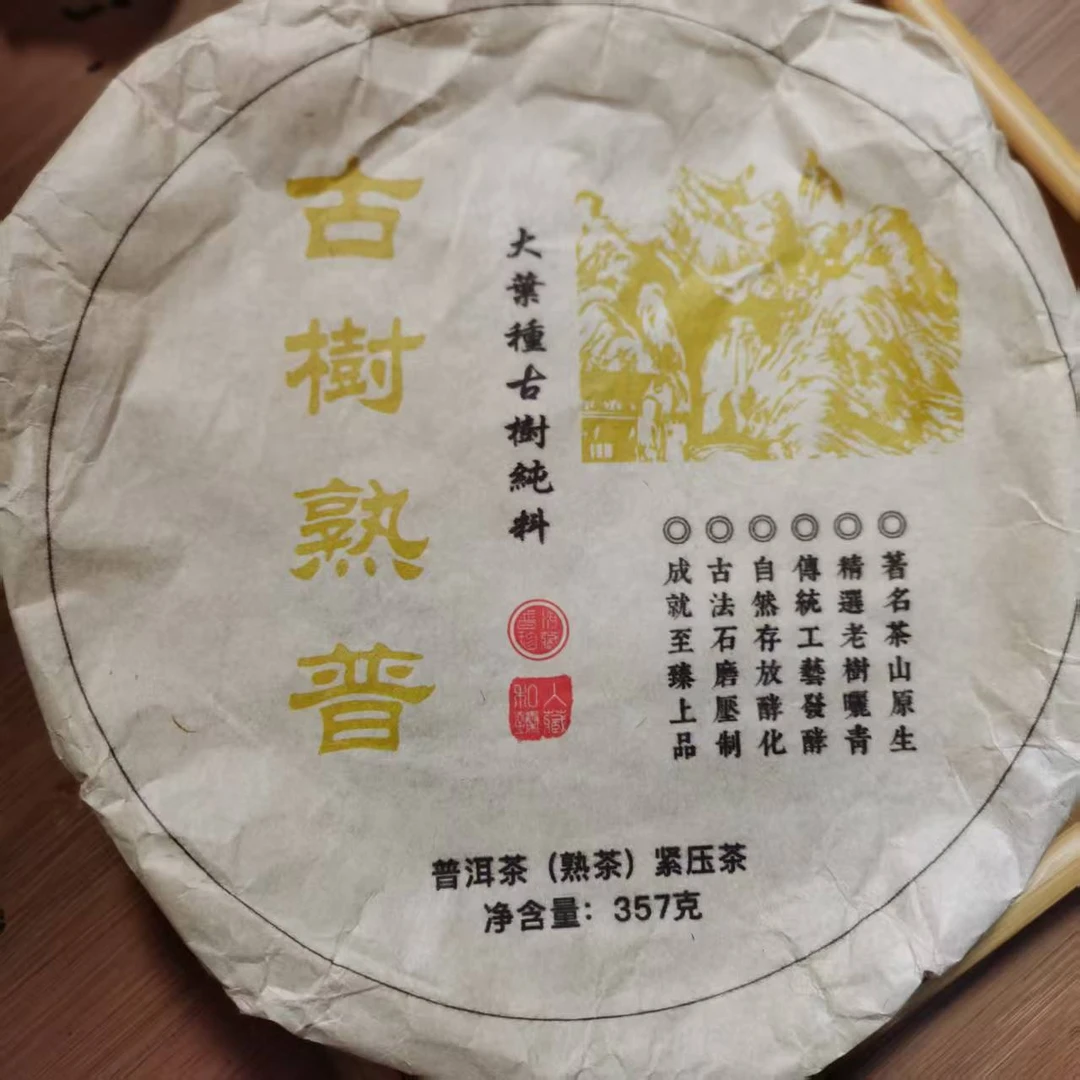 古樹熟普
大葉種古樹純料
著名茶山原生
精選老樹曬青
傳統工藝發酵
自然存放酵化
古法石磨壓制
成就至臻上品
普洱茶（熟茶）紧压茶
净含量：357克